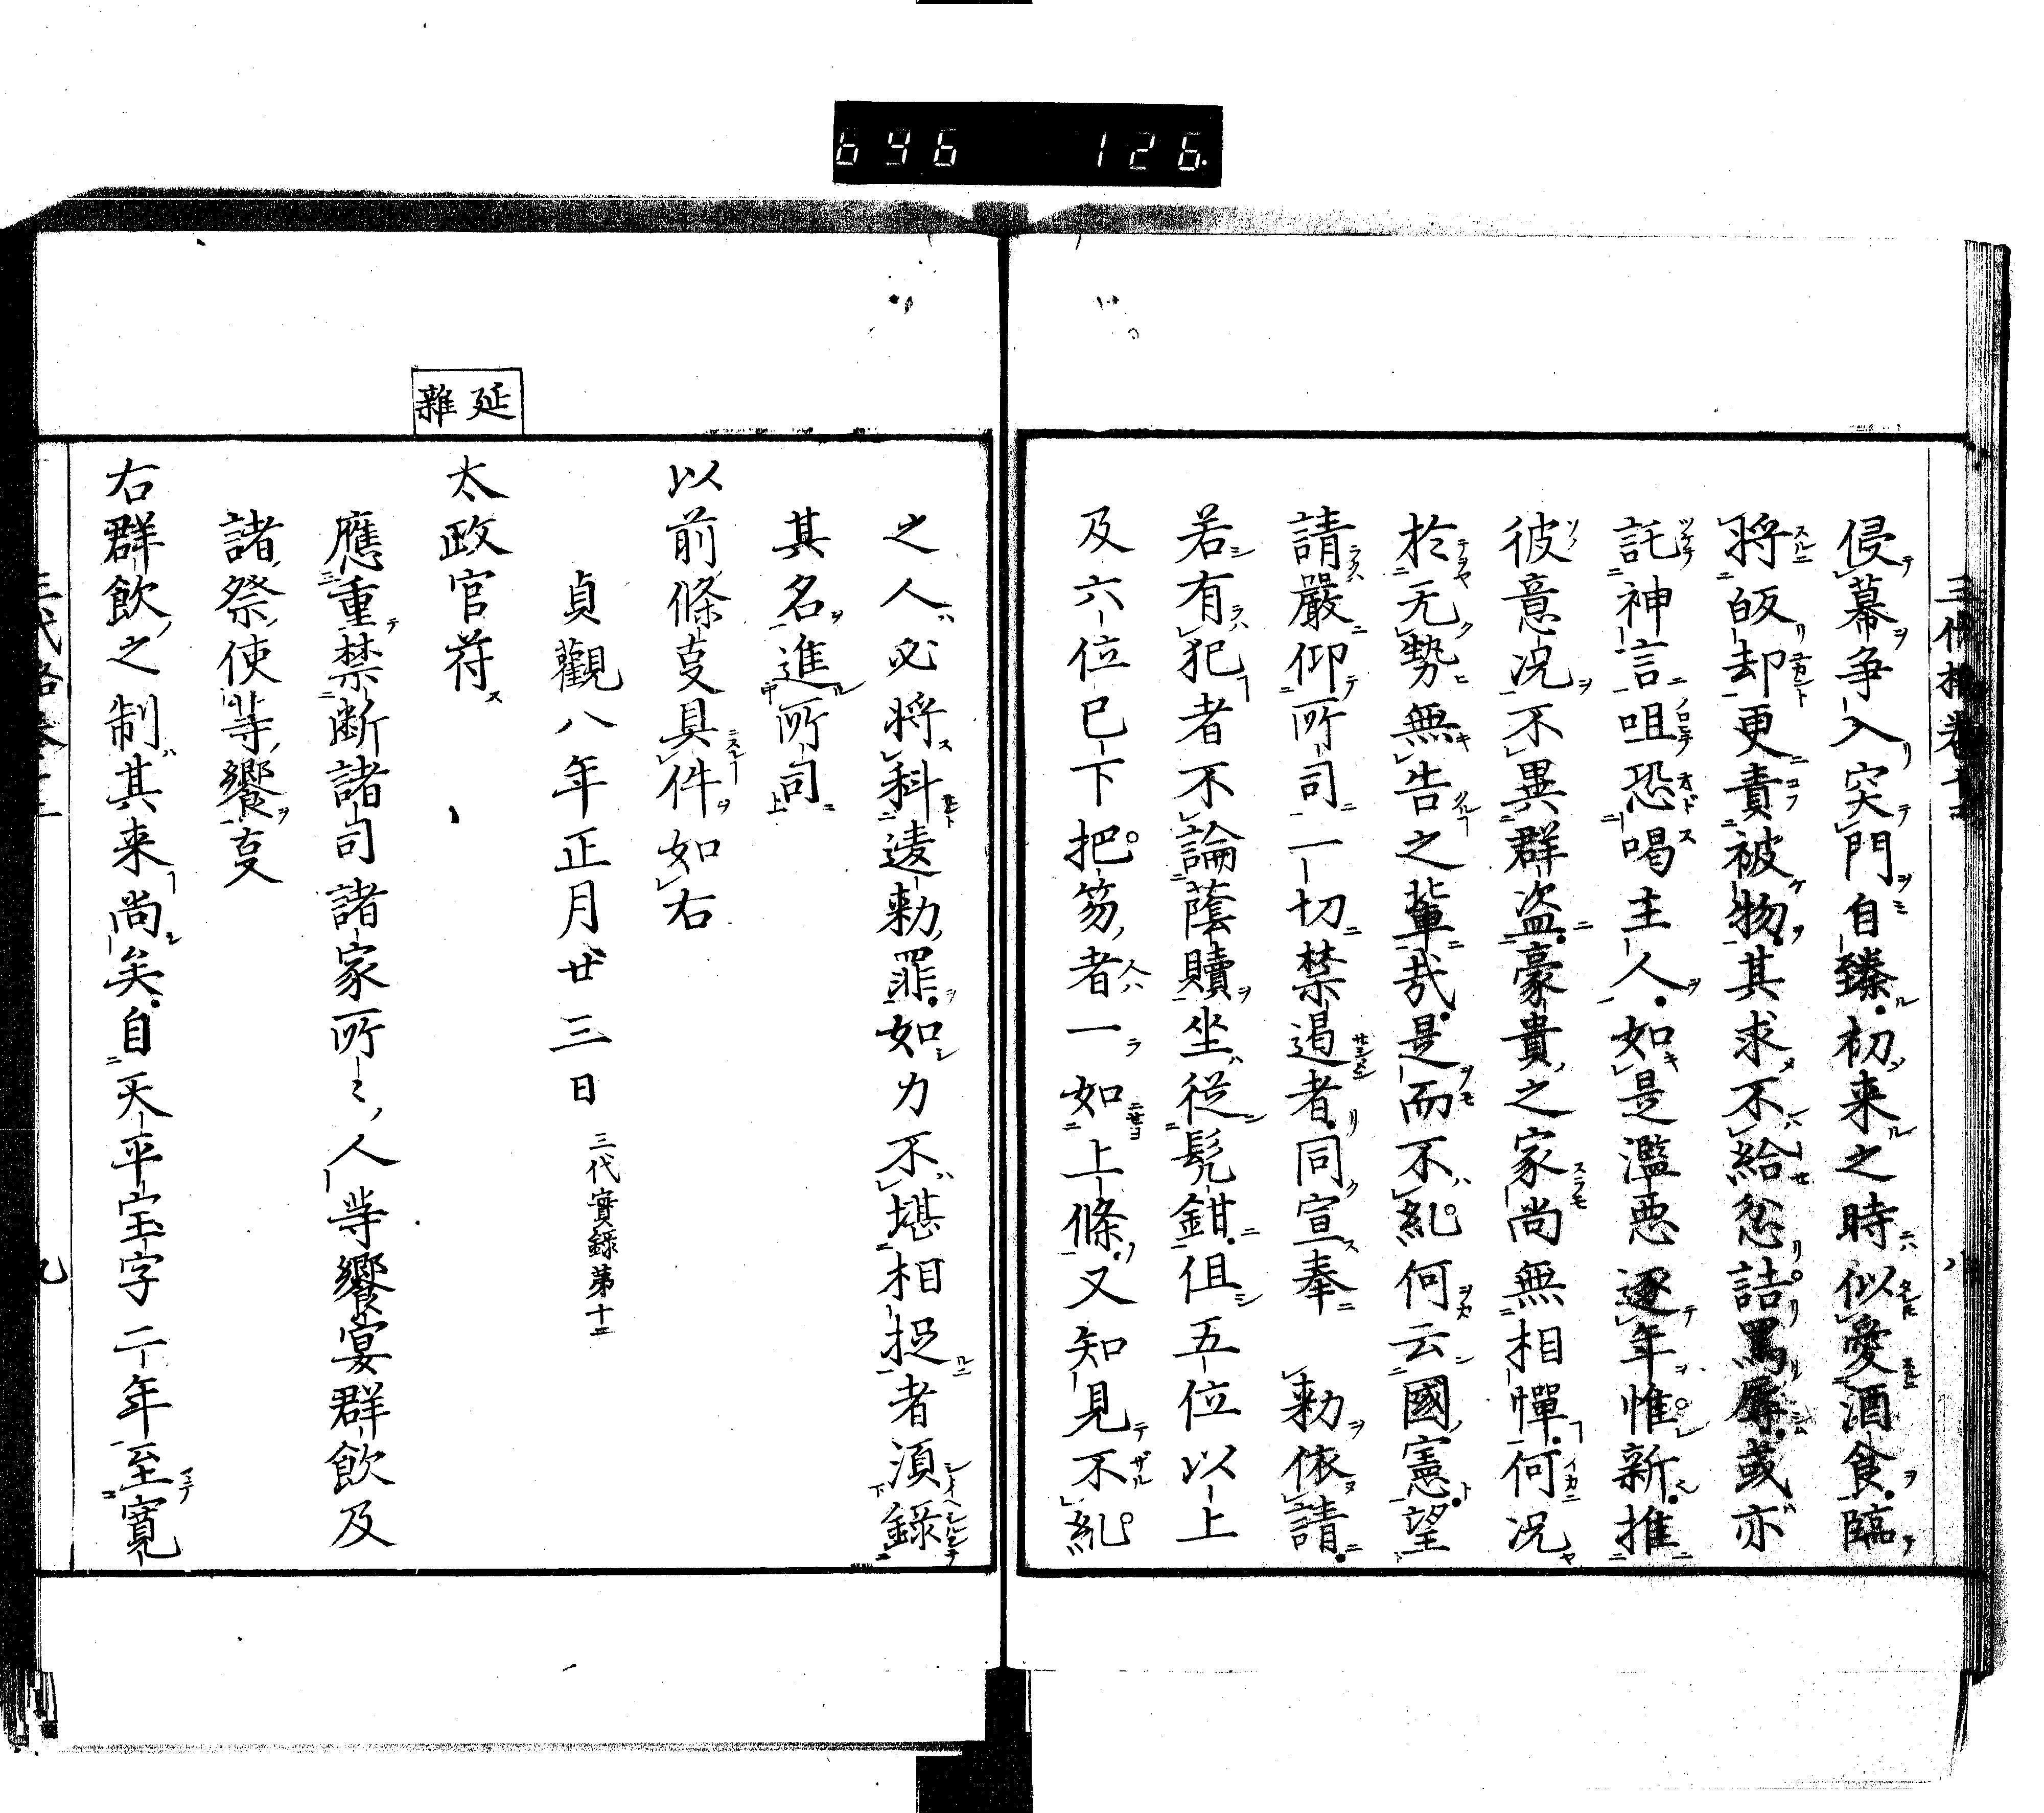 646 126
侵幕争入突門自臻初来之時似愛酒食臨
将皈却更責被物其求不給忿詰罵辱或亦
託神言咀恐喝主人如是濫悪逐年惟新推
彼意况不異群盗豪貴之家尚無相憚何况
於无勢無告之輩哉是而不糺何云國憲望
請嚴仰所司一切禁遏者同宣奉 勅依請
若有犯者不論蔭贖坐従髠鉗但五位以上
及六位已下把笏者一如上條又知見不糺
之人必将科違勅罪如力不堪相捉者須録
其名進所司
以前條叓具件如右
貞觀八年正月廿三日 三代實録第十二
延雜
太政官符
應重禁断諸司諸家所〻人等饗宴群飲及
諸祭使等饗叓
右群飲之制其来尚矣自天平宝字二年至寛
九